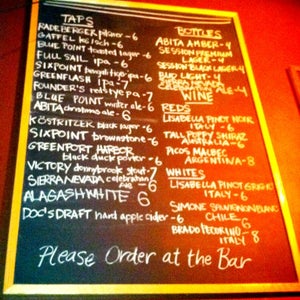 TAPS
RADEBERGER pilsner - 6
GAFFEL kolsch - 6
BLUE POINT toasted lager - 6
FULL SAIL ipa - 6
SIXPOINT bengali ipa - 6
GREENFLASH ipa - 7
FOUNDER'S red's rye pa - 7
BLUE POINT winter ale - 6
ABITA christmas ale - 6
KÖSTRITZER black lager - 6
SIXPOINT brownstone - 6
GREENPORT HARBOR
black duck porter - 6
VICTORY donnybrook stout - 7
SIERRA NEVADA celebration
ale - 6
ALLAGASH WHITE 6
DOC'S DRAFT hard apple cider - 6
BOTTLES
ABITA AMBER - 4
SESSION PREMIUM
LAGER - 4
SESSION BLACK LAGER - 4
BUD LIGHT - 4
ALE - 4
WINE
REDS
LISABELLA PINOT NOIR
ITALY - 6
TALL POPPY SHIRAZ
AUSTRALIA - 6
PICOS MALBEC
ARGENTINA - 8
WHITES
LISABELLA PINOT GRIGIO
ITALY - 6
SIMONE SAUVIGNON BLANC
CHILE - 6
BRADO PECORINO -
ITALY 8
Please Order at the Bar